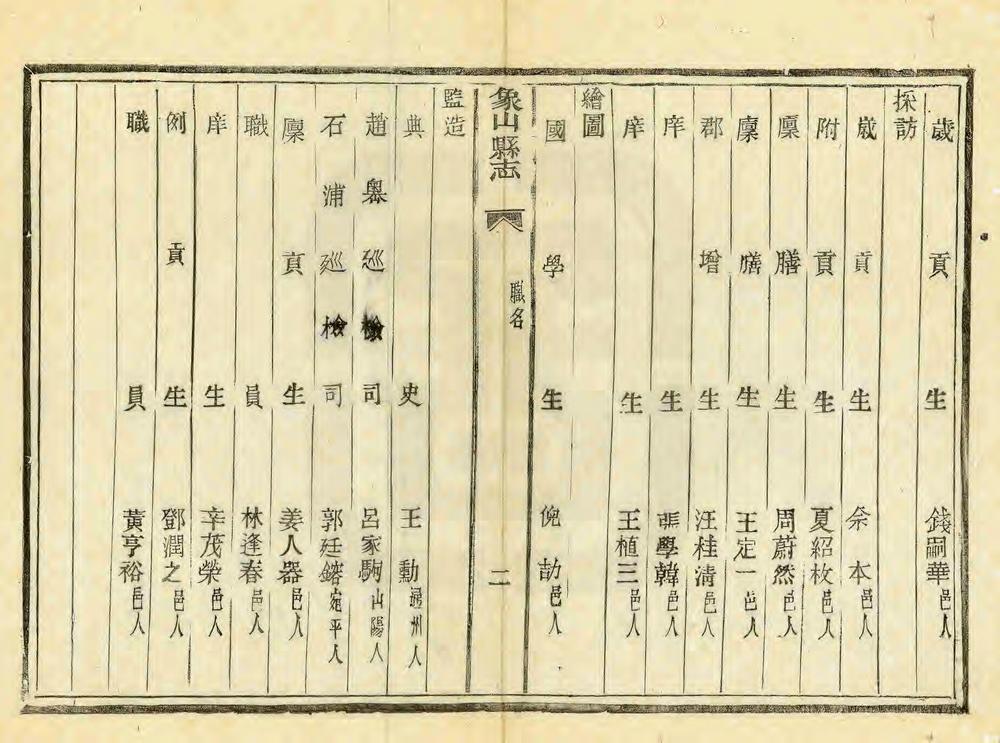 歲貢生錢嗣華邑人
採訪
歲貢生余本邑人
附貢生夏紹枚邑人
廩膳生周蔚然邑人
廩膳生王定一邑人
郡增生汪桂清邑人
庠生張學韓邑人
庠生王植三邑人
繪圖
國學生倪劼邑人
象山縣志
職名
二
監造
典史王勳通州人
趙嶴巡檢司呂家駒山陽人
石浦巡檢司郭廷鎔宛平人
廩貢生姜人器邑人
職員林逢春邑人
庠生辛茂榮邑人
例貢生鄧潤之邑人
職員黃亨裕邑人